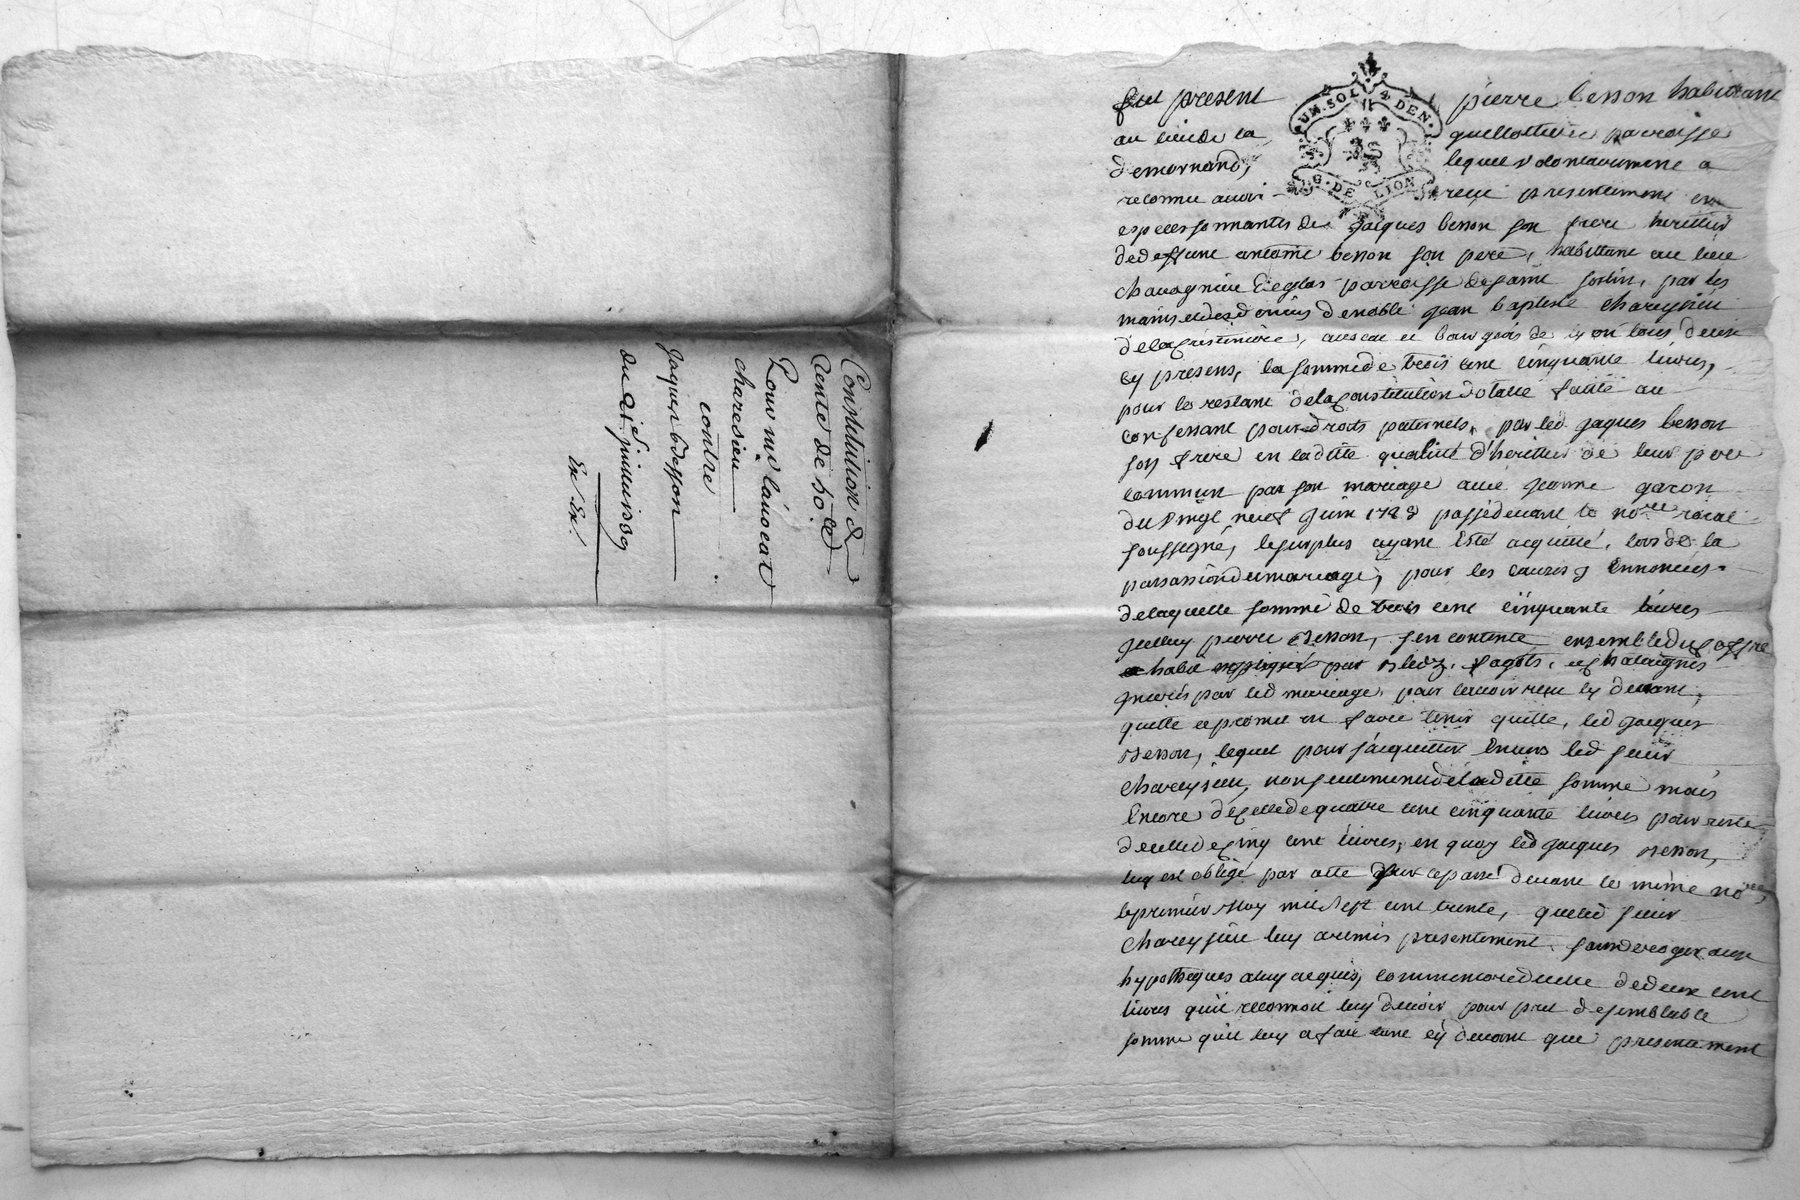 Constitution de
Rente de 50 ᵗᵗ
Pour mr lauocat
charesieu
contre
Jaques besson
du 21e
Ex. Ex.
fut present pierre besson habitant
UN.SOL 4 DEN.
G.DE LION
au lieu de la guillottiere parroisse
demornand, lequel volontairement a
reconnu auoir receu presentement en
especes sonnantes de Jaques besson son frere heritier
dedeffunt antoine besson son pere, habittant au lieu
parroisse desaint sorlin, par les
mains et deniers denoble Jean baptiste chareysieu
auocat et bourgeois de lyon tous deux
cy presens, la somme de trois cent cinquante liures,
pour le restant delaconstitution dotalle faitte au
confessant pour droits paternels, par led Jaques besson
son frere en laditte qualité d'heritier de leur pere
commun par son mariage auec Jeanne garon
du vingt neuf Juin 1728 passé deuant le nore roial
soussigné, lesurplus ayant esté acquitté, lors de la
passation dumariage, pour les causes y Ennoncées
delaquelle somme de trois cent cinquante liures
Jcelluy pierre Besson, sen contente ensemble du coffre
habit par bledz, fagots,
par led mariage, pour lauoir receu cy deuant,
quitte et promet en faire tenir quitte, led Jaques
Besson, lequel pour s'acquitter Enuers led sieur
chareysieu, non seulement deladitte somme mais
Encore decelle dequatre cent cinquante liures pour reste
decelle decinq cent liures, en quoy led Jaques Besson,
luy est obligé par acte passé deuant le même nore,
lepremier May mil sept cent trente, queled sieur
chareysieu luy aremis presentement, sans deroger aux
hypotheques aluy acquis, comm'encore de celle dedeux cent
liures qu'il reconnoit luy deuoir pour pret desemblable
somme qu'il luy afait tant cy deuant que presentement